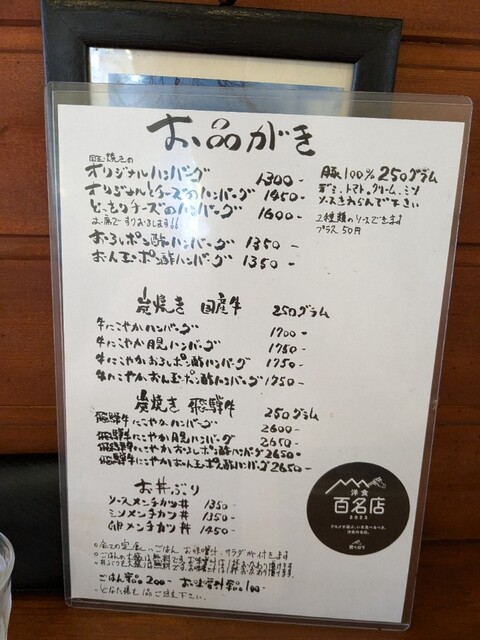 お品がき
オリジナルハンバーグ 1300-
オリジナルとチーズのハンバーグ 1450-
とっきりチーズのハンバーグ 1600-
お席ですりおろします!!
おろしポン酢ハンバーグ 1350-
おん玉ポン酢ハンバーグ 1350-
豚100% 250グラム
デミ、トマト、クリーム、ミソ
ソースきえらんで下さい
2種類のソースできます
プラス50円
炭焼き 国産牛 250グラム
牛にこやかハンバーグ 1700-
牛にこやか月見ハンバーグ 1750-
牛にこやかおろしポン酢ハンバーグ 1750-
牛にこやかおん玉ポン酢ハンバーグ 1750-
炭焼き 飛騨牛 250グラム
飛騨牛にこやかハンバーグ 2600-
飛騨牛にこやか月見ハンバーグ 2650-
飛騨牛にこやかおろしポン酢ハンバーグ 2650-
飛騨牛にこやかおん玉ポン酢ハンバーグ 2650-
お丼ぶり
ソースメンチカツ丼 1350-
ミソメンチカツ丼 1350-
メンチカツ丼 1450-
洋食
百名店
食べログ
◦全ての定食にごはん お味噌汁、サラダが付きます
ごはん単品200- お味噌汁単品100-